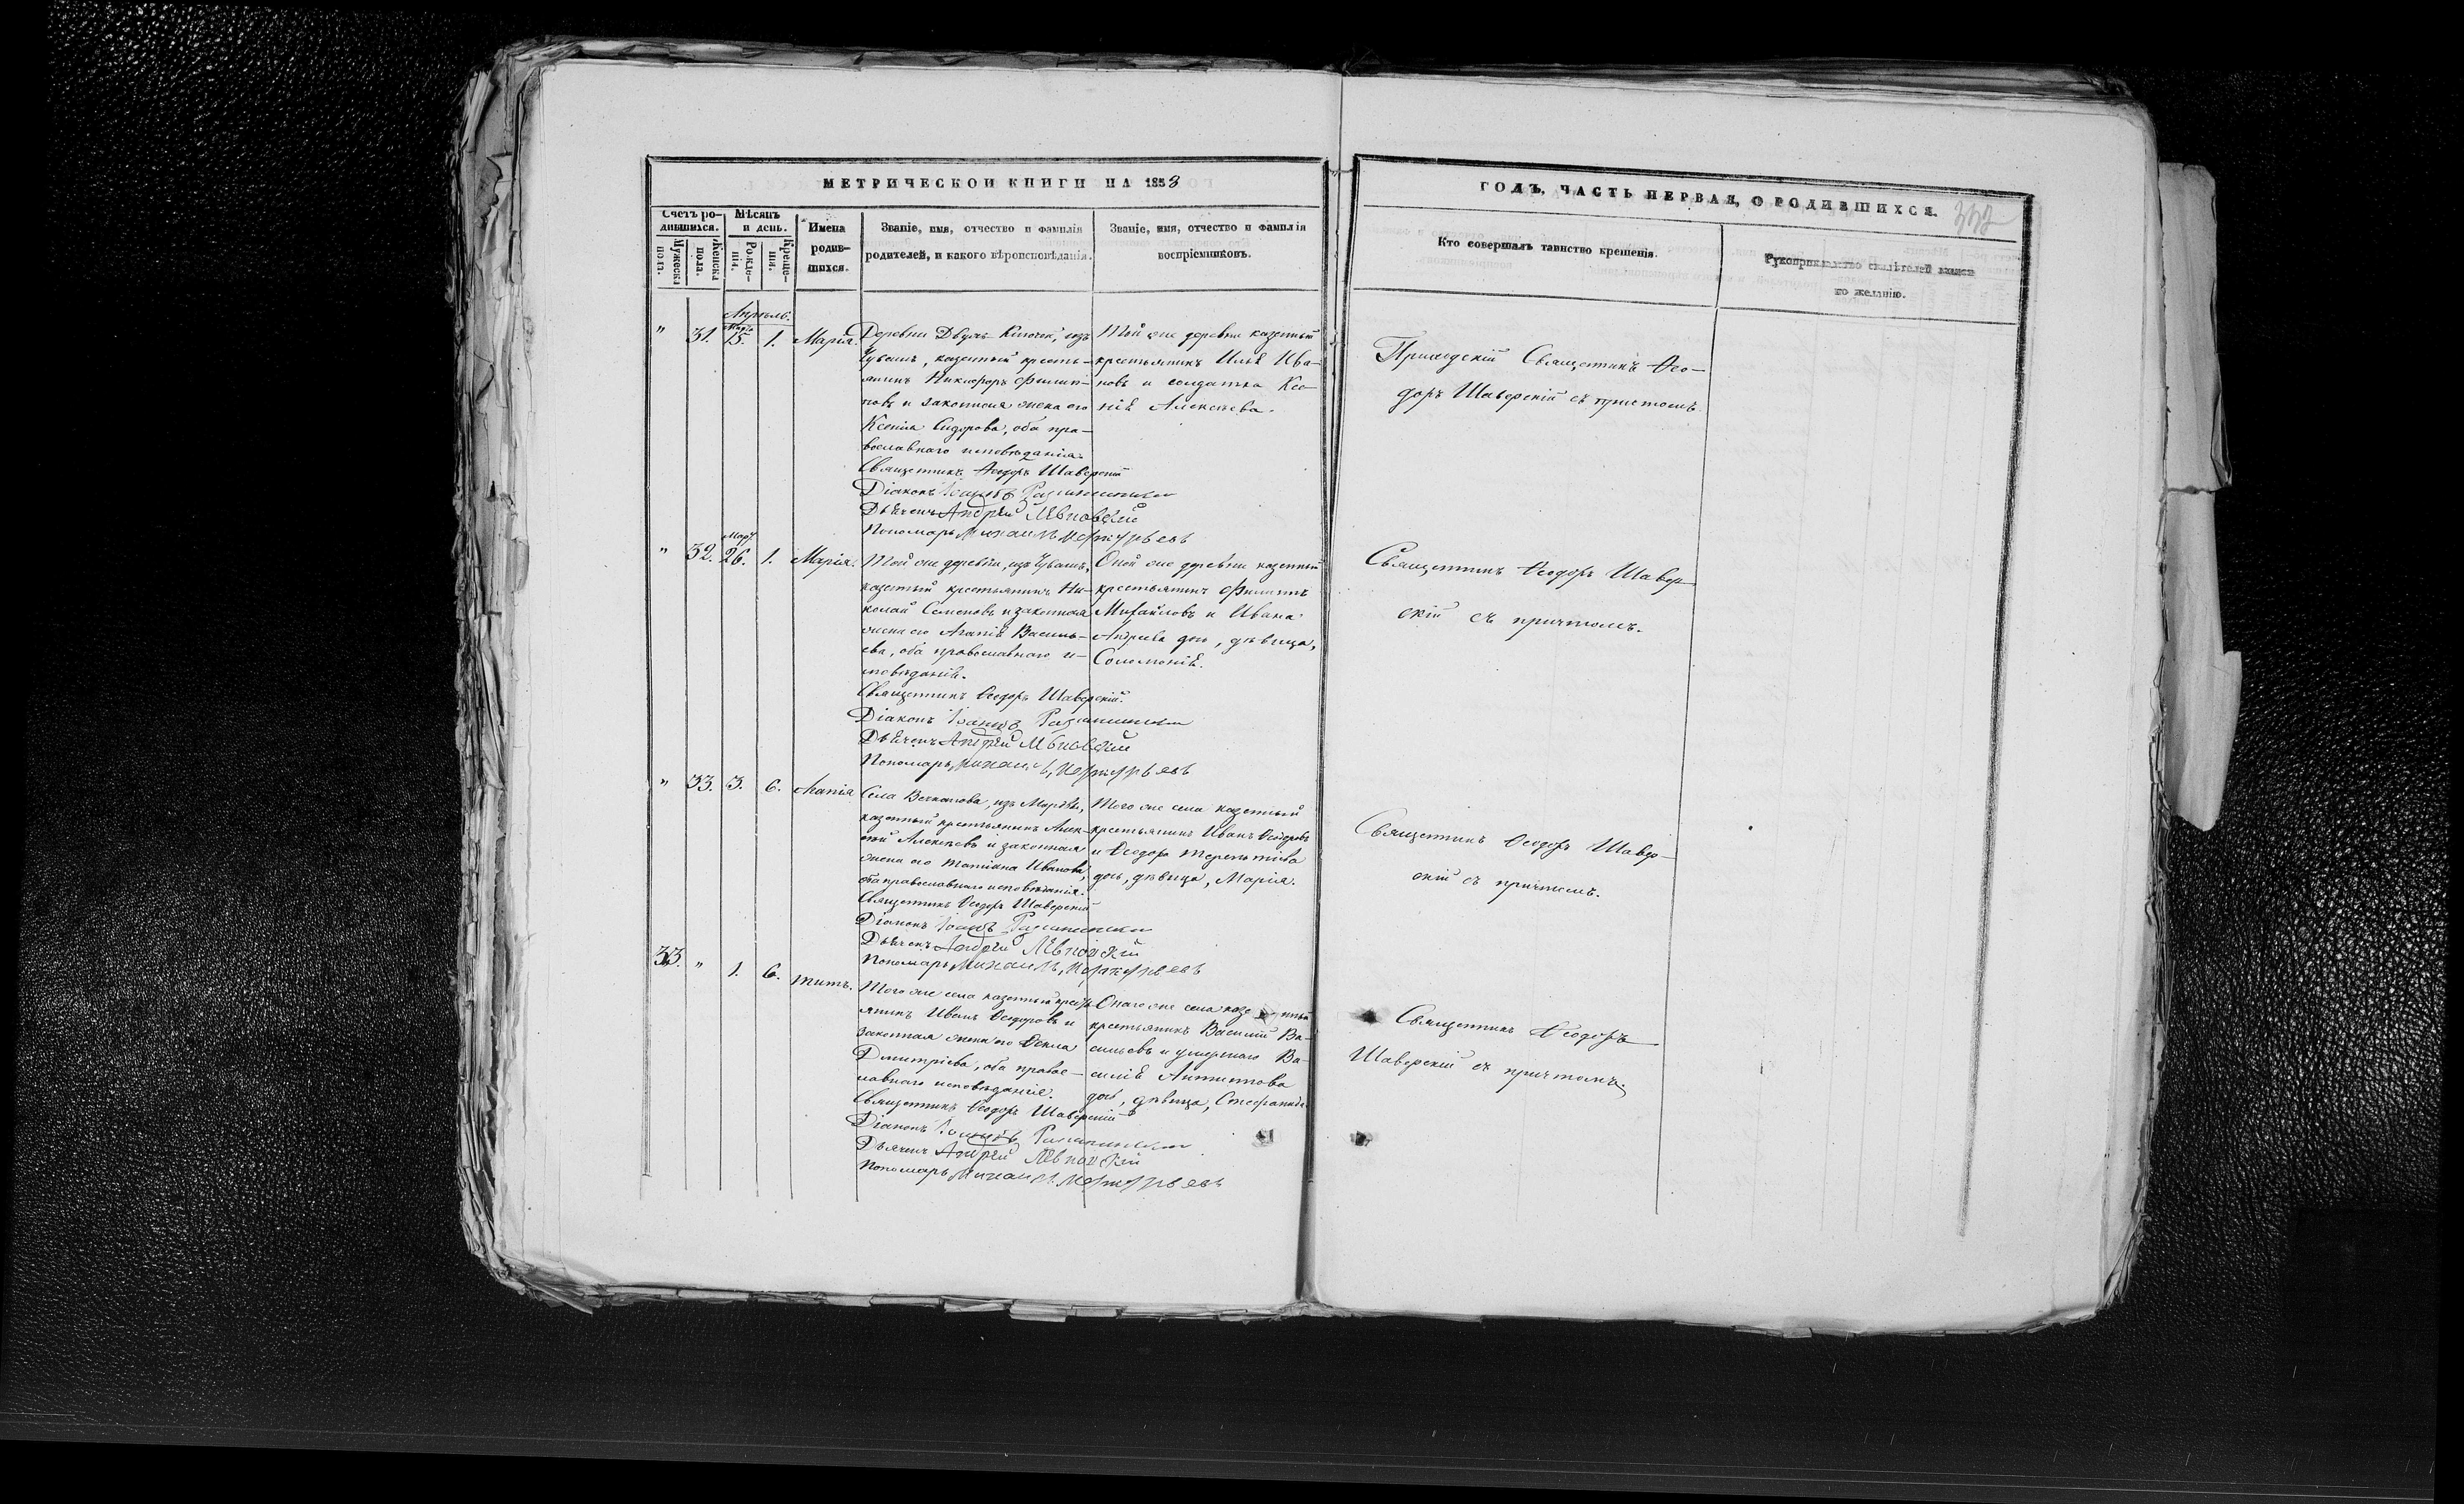 МЕТРИЧЕСКОЙ КНИГИ НА 1853
ГОДЪ, ЧАСТЬ ПЕРВАЯ, О РОДИВШИХСЯ.
Счетъ ро-
дившихся.
Мужеска
пола.
Женска
пола.
Мѣсяцъ
и день.
Рожде-
нія.
Креще-
нія.
Имена
родив-
шихся.
Званіе, имя, отчество и фамилія
родителей, и какого вѣроисповѣданія.
Званіе, имя, отчество и фамилія
воспріемниковъ.
Кто совершалъ таинство крещенія.
Рукоприкладство свидѣтелей записи
по желанію.
Апрѣль.
" 31. Марта 15. 1. Марія.
Деревни Двухъ Ключей, изъ
Чувашъ, казенный кресть-
янинъ Никифоръ Филип-
повъ и законная жена его
Ксенія Сидорова, оба пра-
вославнаго исповѣданія.
Священникъ Ѳеодоръ Шаверскій
Діаконъ Іоаннъ
Дьячекъ Андрей
Пономарь Михаилъ Меркурьевъ
Той же деревни казенный
крестьянинъ Илья Ива-
новъ и солдатка Ксе-
нія Алексѣева.
Приходскій Священникъ Ѳео-
доръ Шаверскій съ причтомъ.
" 32. Мар. 26. 1. Марія.
Той же деревни, изъ Чувашъ,
казенный крестьянинъ Ни-
колай Семеновъ и законная
жена его Агапія Василь-
ева, оба православнаго и-
сповѣданія.
Священникъ Ѳеодоръ Шаверскій.
Діаконъ Іоаннъ
Дьячекъ Андрей
Пономарь Михаилъ Меркурьевъ
Оной же деревни казенный
крестьянинъ Филиппъ
Михайловъ и Ивана
Андреева дочь, дѣвица,
Соломонія.
Священникъ Ѳеодоръ Шавер-
скій съ причтомъ.
" 33. 3. 6.
Села из Мордвы,
казенный крестьянинъ Алек-
сѣй Алексѣевъ и законная
жена его Татіана Иванова,
оба православнаго исповѣданія.
Священникъ Ѳеодоръ Шаверскій
Діаконъ Іоаннъ
Дьячекъ Андрей
Пономарь Михаилъ Меркурьевъ
Того же села казенный
крестьянинъ Иванъ Ѳеодоровъ
и Ѳеодора Терентіева
дочь, дѣвица, Марія.
Священникъ Ѳеодоръ Шавер-
скій съ причтомъ.
33. " 1. 6. Титъ.
Того же села казенный кресть-
янинъ Иванъ Ѳеодоровъ и
законная жена его Ѳекла
Дмитріева, оба правос-
лавнаго исповѣданія.
Священникъ Ѳеодоръ Шаверскій
Діаконъ Іоаннъ
Дьячекъ Андрей
Пономарь Михаилъ Меркурьевъ
Онаго же села казенный
крестьянинъ Василій Ва-
сильевъ и умершаго Ва-
силія Антипова
дочь, дѣвица, Стефанида.
Священникъ Ѳеодоръ
Шаверскій съ причтомъ.